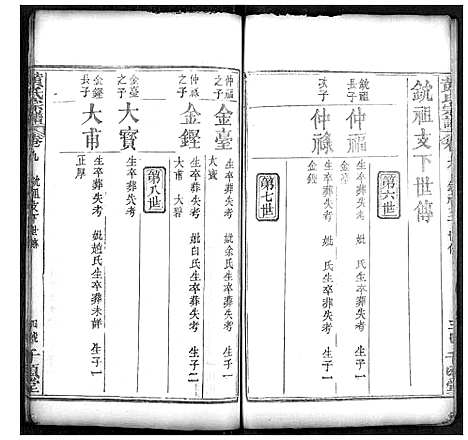 銃祖支下世傳
第六世
銃祖長子
仲福
生卒葬失考 妣 氏生卒葬失考 生子一
金臺
次子
仲祿
生卒葬失考 妣 氏生卒葬失考 生子一
金鏗
第七世
仲福之子
金臺
生卒葬失考 妣余氏生卒葬失考 生子一
大寶
仲祿長子
金鏗
生卒葬失考 妣白氏生卒葬失考 生子二
大甫 大
第八世
金臺之子
大寶
生卒葬失考
金鏗長子
大甫
生卒葬失考 妣趙氏生卒葬未詳 生子一
正厚
黃氏宗譜
卷九
銃祖支下世傳
千頃堂